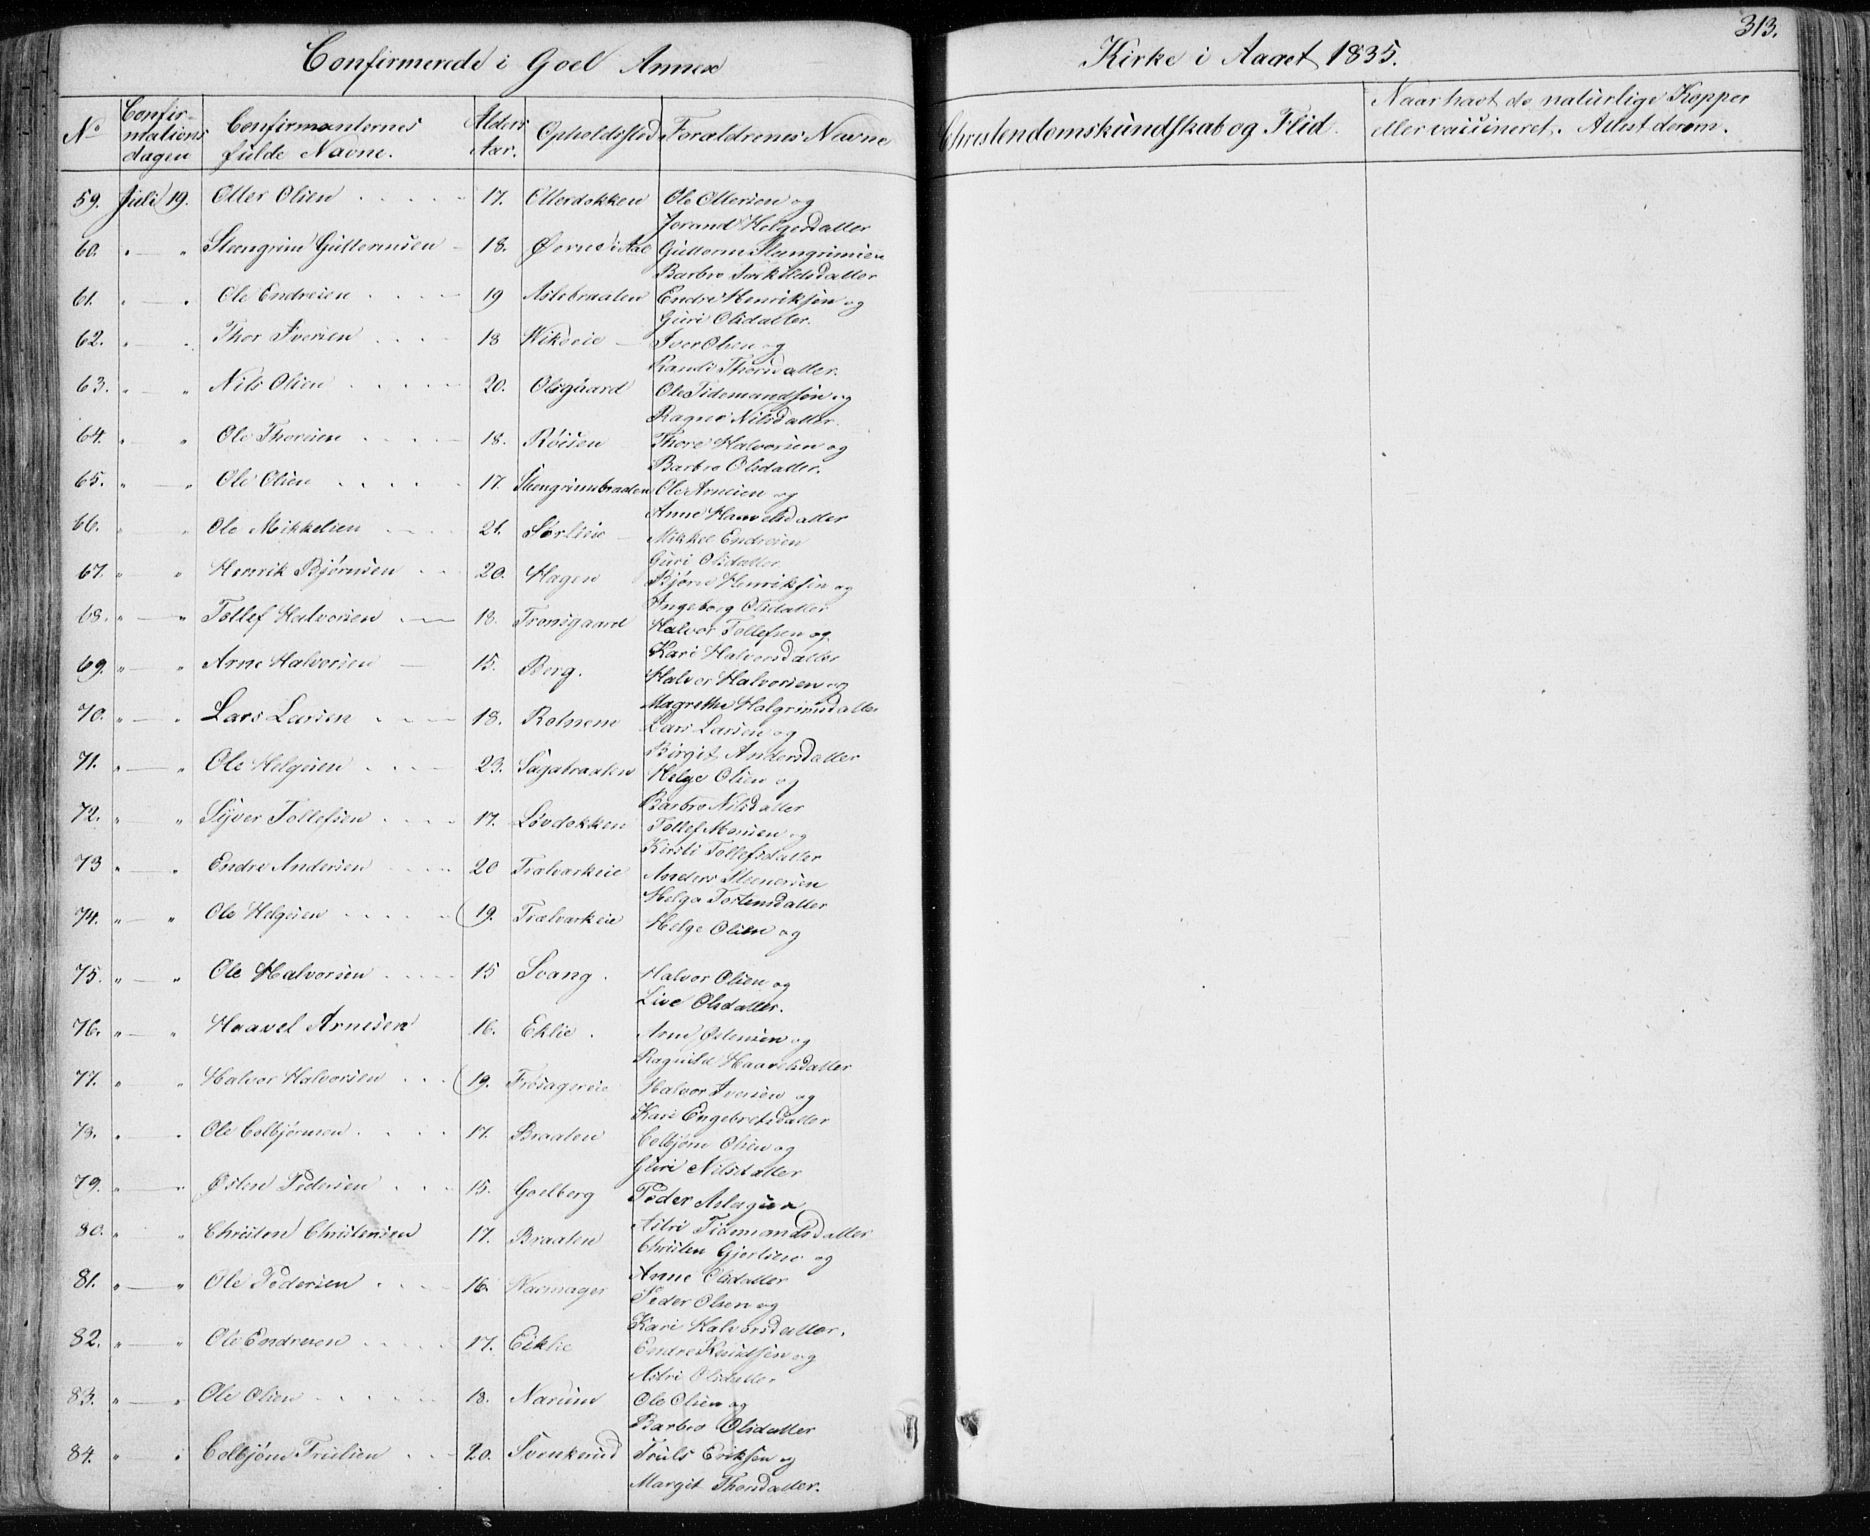 Confirmerede i Goel Annex Kirke i Aaret 1835.
313.
No Confirmations dagen Confirmanternes fulde Navne. Alders Aar. Opholdssted Forældrenes Navne Christendomskundskab og Flid. Naar havt de naturlige Kopper eller vaccineret. Attest derom.
59. Juli 19. Otter Olsen 17. Otterdokken Ole Ottersen og
Jorand Helgesdatter
60. " — " Steengrim Guttormsen 18. Ørnes i Aal Guttorm Steengrimsen
Barbro Torkildsdatter
61. " — " Ole Endresen 19 Aslebraaten Endre Henriksen og
Guri Olsdatter.
62. " — " Thor Iversen 18 Vikseie Iver Olsen og
Randi Thorsdatter.
63. " — " Nils Olsen 20. Olsgaard Ole Tidemandsen og
Ragne Nilsdatter.
64. " — " Ole Thoresen 18. Røisen Thore Halvorsen og
Barbro Olsdatter.
65. " — " Ole Olsen 17. Steengrimsbraaten Ole Arnesen og
Anne Haavelsdatter
66. " — " Ole Mikkelsen 21. Sørlieie Mikkel Endresen
Guri Olsdatter
67. " — " Henrik Bjørnsen 20. Hagen Bjørn Henriksen og
Ingeborg Olsdatter
68. " — " Tollef Halvorsen 18. Tronsgaard Halvor Tollefsen og
Kari Halvorsdatter
69. " — " Arne Halvorsen 15. Berg. Halvor Halvorsen og
Magrethe Halgrimsdatter
70. " — " Lars Larsen 18. Rotneme Lars Larsen og
Birgit Andersdatter
71. " — " Ole Helgesen 23. Sagabraaten Helge Olsen og
Barbro Nilsdatter
72. " — " Syver Tollefsen 17. Løvdokken Tollef Monsen og
Kirsti Tollefsdatter
73 " — " Endre Andersen 20 Trølvarkeie Anders Steenersen
Helga Tostensdatter
74. " — " Ole Helgesen 19. Trælvarkeie Helge Olsen og
75. " — " Ole Halvorsen 15 Svang. Halvor Olsen og
Live Olsdatter.
76. " — " Haavel Arnesen 16. Eklie. Arne Østensen og
Ragnild Haavelsdatter
77. " — " Halvor Halvorsen 19. Frøsagereie Halvor Iversen og
Kari Engebretsdatter
78. " — " Ole Colbjørnsen 17. Braaten Colbjørn Olsen og
Guri Nilsdatter
79. " — " Østen Pedersen 15. Goelberg Peder Aslagsen
Astri Tidemandsdatter
80. " — " Christen Christensen 17. Braaten Christen Gjertsen og
Anne Olsdatter
81. " — " Ole Pedersen 16. Narmager Peder Olsen og
Kari Halvorsdatter.
82. " — " Ole Endresen 17. Eiklie Endre Knudsen og
Astri Olsdatter
83. " — " Ole Olsen 18. Narum Ole Olsen og
Barbro Olsdatter
84. " — " Colbjørn Trulsen 20. Svenkerud Truls Eriksen og
Margit Thorsdatter.